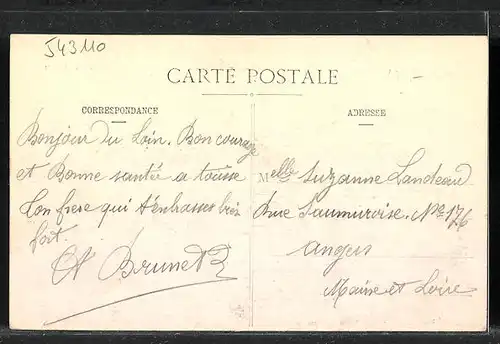 54310
CARTE POSTALE
CORRESPONDANCE
Bonjour du Loin. Bon courage
et Bonne santée a tousse
Ton frere qui t'enbrasses bien
fort.
A Brunet
ADRESSE
Melle Suzanne Landeau
Rue Saumuroise. No 176
Angers
Maine et Loire